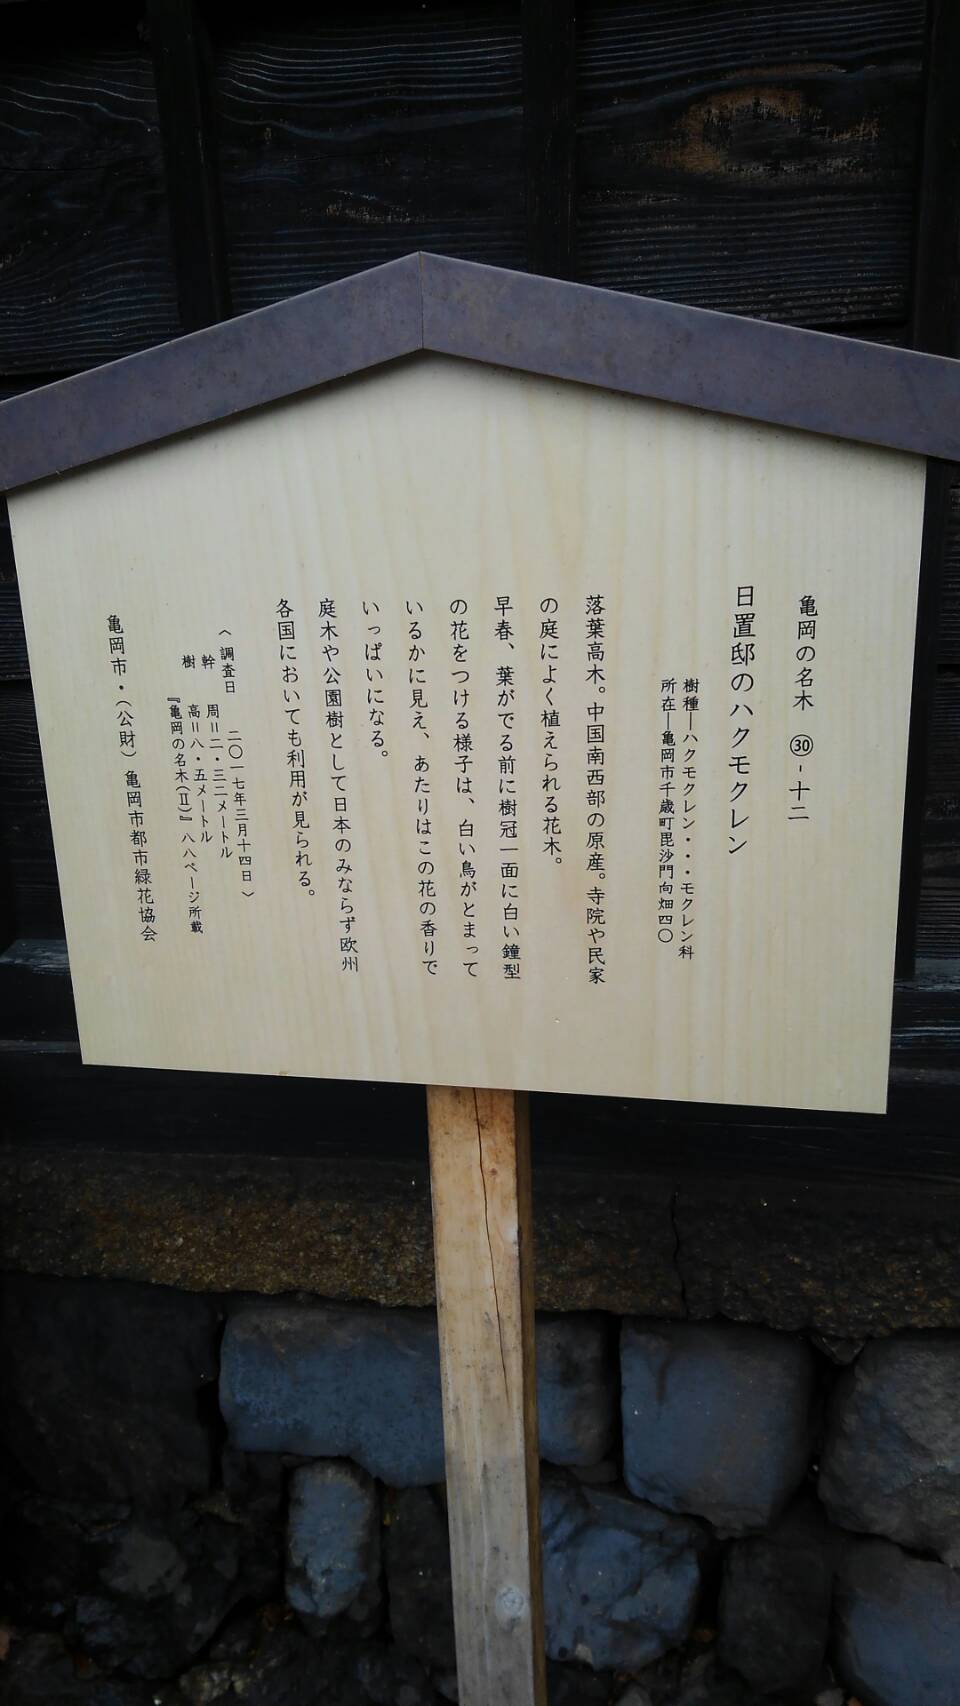 亀岡の名木 ㉚-十二
日置邸のハクモクレン
樹種―ハクモクレン・・・モクレン科
所在―亀岡市千歳町毘沙門向畑四〇
落葉高木。中国南西部の原産。寺院や民家
の庭によく植えられる花木。
早春、葉がでる前に樹冠一面に白い鐘型
の花をつける様子は、白い鳥がとまって
いるかに見え、あたりはこの花の香りで
いっぱいになる。
庭木や公園樹として日本のみならず欧州
各国においても利用が見られる。
〈調査日 二〇一七年三月十四日〉
幹 周＝二・三二メートル
樹 高＝八・五メートル
『亀岡の名木(Ⅱ)』八八ページ所載
亀岡市・(公財)亀岡市都市緑花協会